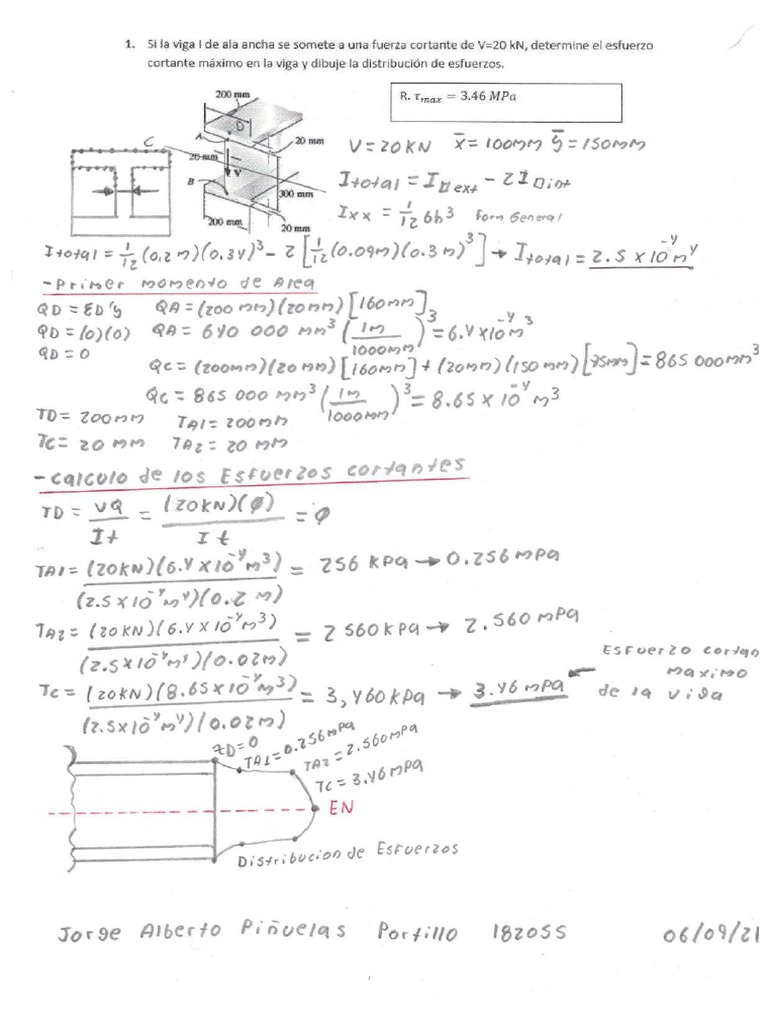 1. Si la viga I de ala ancha se somete a una fuerza cortante de V=20 kN, determine el esfuerzo
cortante máximo en la viga y dibuje la distribución de esfuerzos.
R. τmax = 3.46 MPa
200 mm
D
A
20 mm
20 mm
V
B
300 mm
200 mm
20 mm
C
V=20KN x̄=100mm ȳ=150mm
Itotal = I□ext - 2I□int
Ixx = 1/12 bh³ Form General
Itotal = 1/12 (0.2m)(0.34)³ - 2 [1/12 (0.09m)(0.3m)³] → Itotal = 2.5 x 10⁻⁴ m⁴
-Primer momento de Area
QD = ΣD'y QA = (200mm)(20mm)[160mm]
QD = (0)(0) QA = 640 000 mm³ (1m/1000mm)³ = 6.4x10⁻⁴ m³
QD = 0
QC = (200mm)(20mm)[160mm] + (20mm)(150mm)[75mm] = 865 000mm³
QC = 865 000 mm³ (1m/1000mm)³ = 8.65 x 10⁻⁴ m³
TD = 200mm TA1 = 200mm
TC = 20 mm TA2 = 20 mm
-Calculo de los Esfuerzos cortantes
TD = VQ/It = (20KN)(∅)/It = ∅
TA1 = (20KN)(6.4x10⁻⁴m³)/(2.5x10⁻⁴m⁴)(0.2m) = 256 KPa → 0.256 mPa
TA2 = (20KN)(6.4x10⁻⁴m³)/(2.5x10⁻⁴m⁴)(0.02m) = 2 560KPa → 2.560mPa
TC = (20KN)(8.65x10⁻⁴m³)/(2.5x10⁻⁴m⁴)(0.02m) = 3,460KPa → 3.46 mPa
Esfuerzo cortan
maximo
de la viga
ZD=0
TA1=0.256mPa
TA2=2.560mPa
TC=3.46mPa
EN
Distribucion de Esfuerzos
Jorge Alberto Piñuelas Portillo 182055 06/09/21